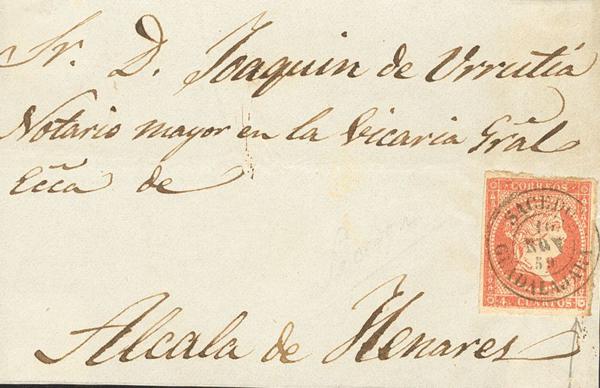 Sr. D. Joaquin de Urrutia
Notario mayor en la Vicaria Grãl
Ecc̃a de
CORREOS
SACEDON
16
NOV
59
GUADALAJARA
4 CUARTOS
Alcala de Henares